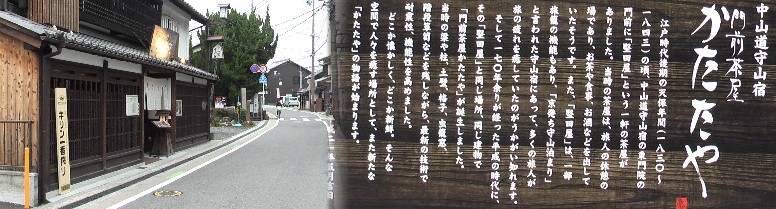 中山道守山宿
門前茶屋
かたたや
江戸時代後期の天保年間(一八三〇~
一八四三)の頃、中山道守山宿の東門院の
門前に「堅田屋」という一軒の茶屋が
ありました。当時の茶屋は、旅人の休憩の
場であり、お茶や食事、お酒などを出して
いたそうです。また、「堅田屋」は、一部
旅籠の機能もあり、「京発ち守山泊まり」
と言われた守山宿にあって、多くの旅人が
旅の疲れを落としていたのがうかがい知れます。
そして一七〇年余りが経った平成の時代に、
その「堅田屋」と同じ場所、同じ建物で
「門前茶屋かたたや」が誕生しました。
当時の梁や柱、土間、格子、虫籠窓、
階段箪笥などを残しながら、最新の技術で
耐震性、機能性を高めました。
どこか懐かしく、どこか新鮮。そんな
空間で人々を癒す場所として、また新たな
「かたたや」の物語が始まります。
キリン一番搾り